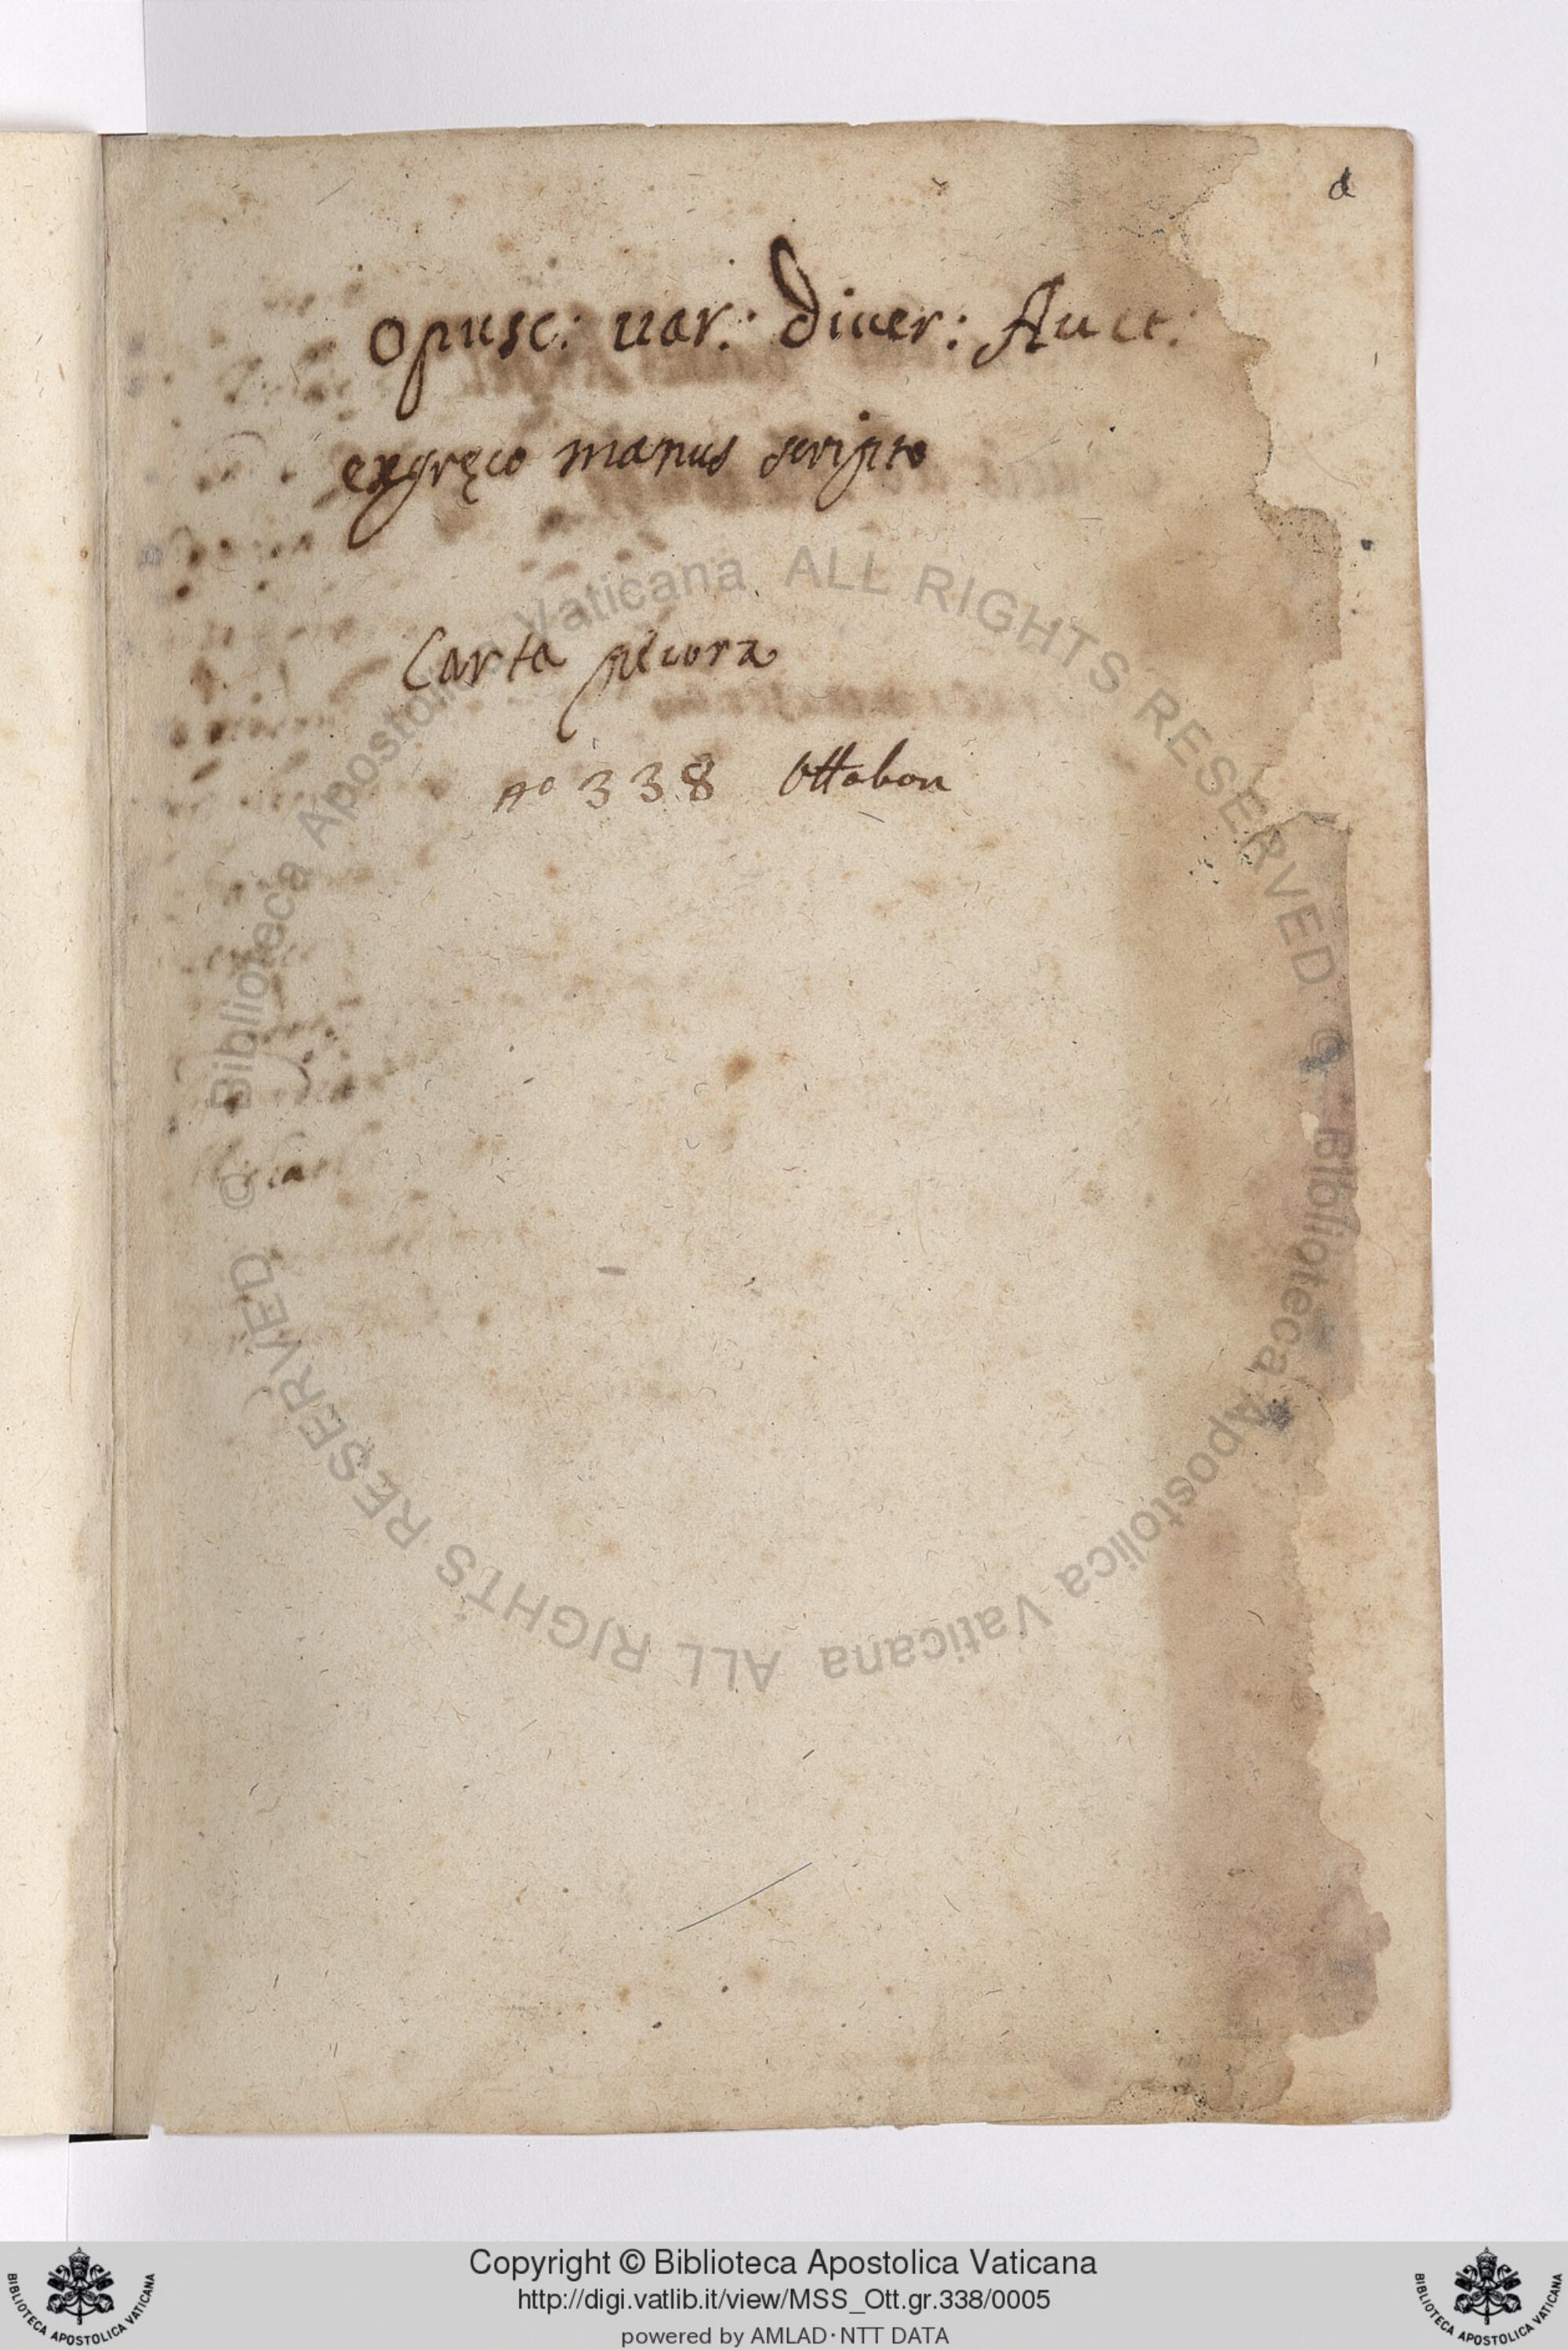 a
Opusc: uar: Diuer: Auct:
ex gręco manus scripto
Carta pecora
n° 338 Ottobon
© Biblioteca Apostolica Vaticana ALL RIGHTS RESERVED © Biblioteca Apostolica Vaticana ALL RIGHTS RESERVED
Copyright © Biblioteca Apostolica Vaticana
http://digi.vatlib.it/view/MSS_Ott.gr.338/0005
powered by AMLAD·NTT DATA
BIBLIOTECA APOSTOLICA VATICANA
BIBLIOTECA APOSTOLICA VATICANA